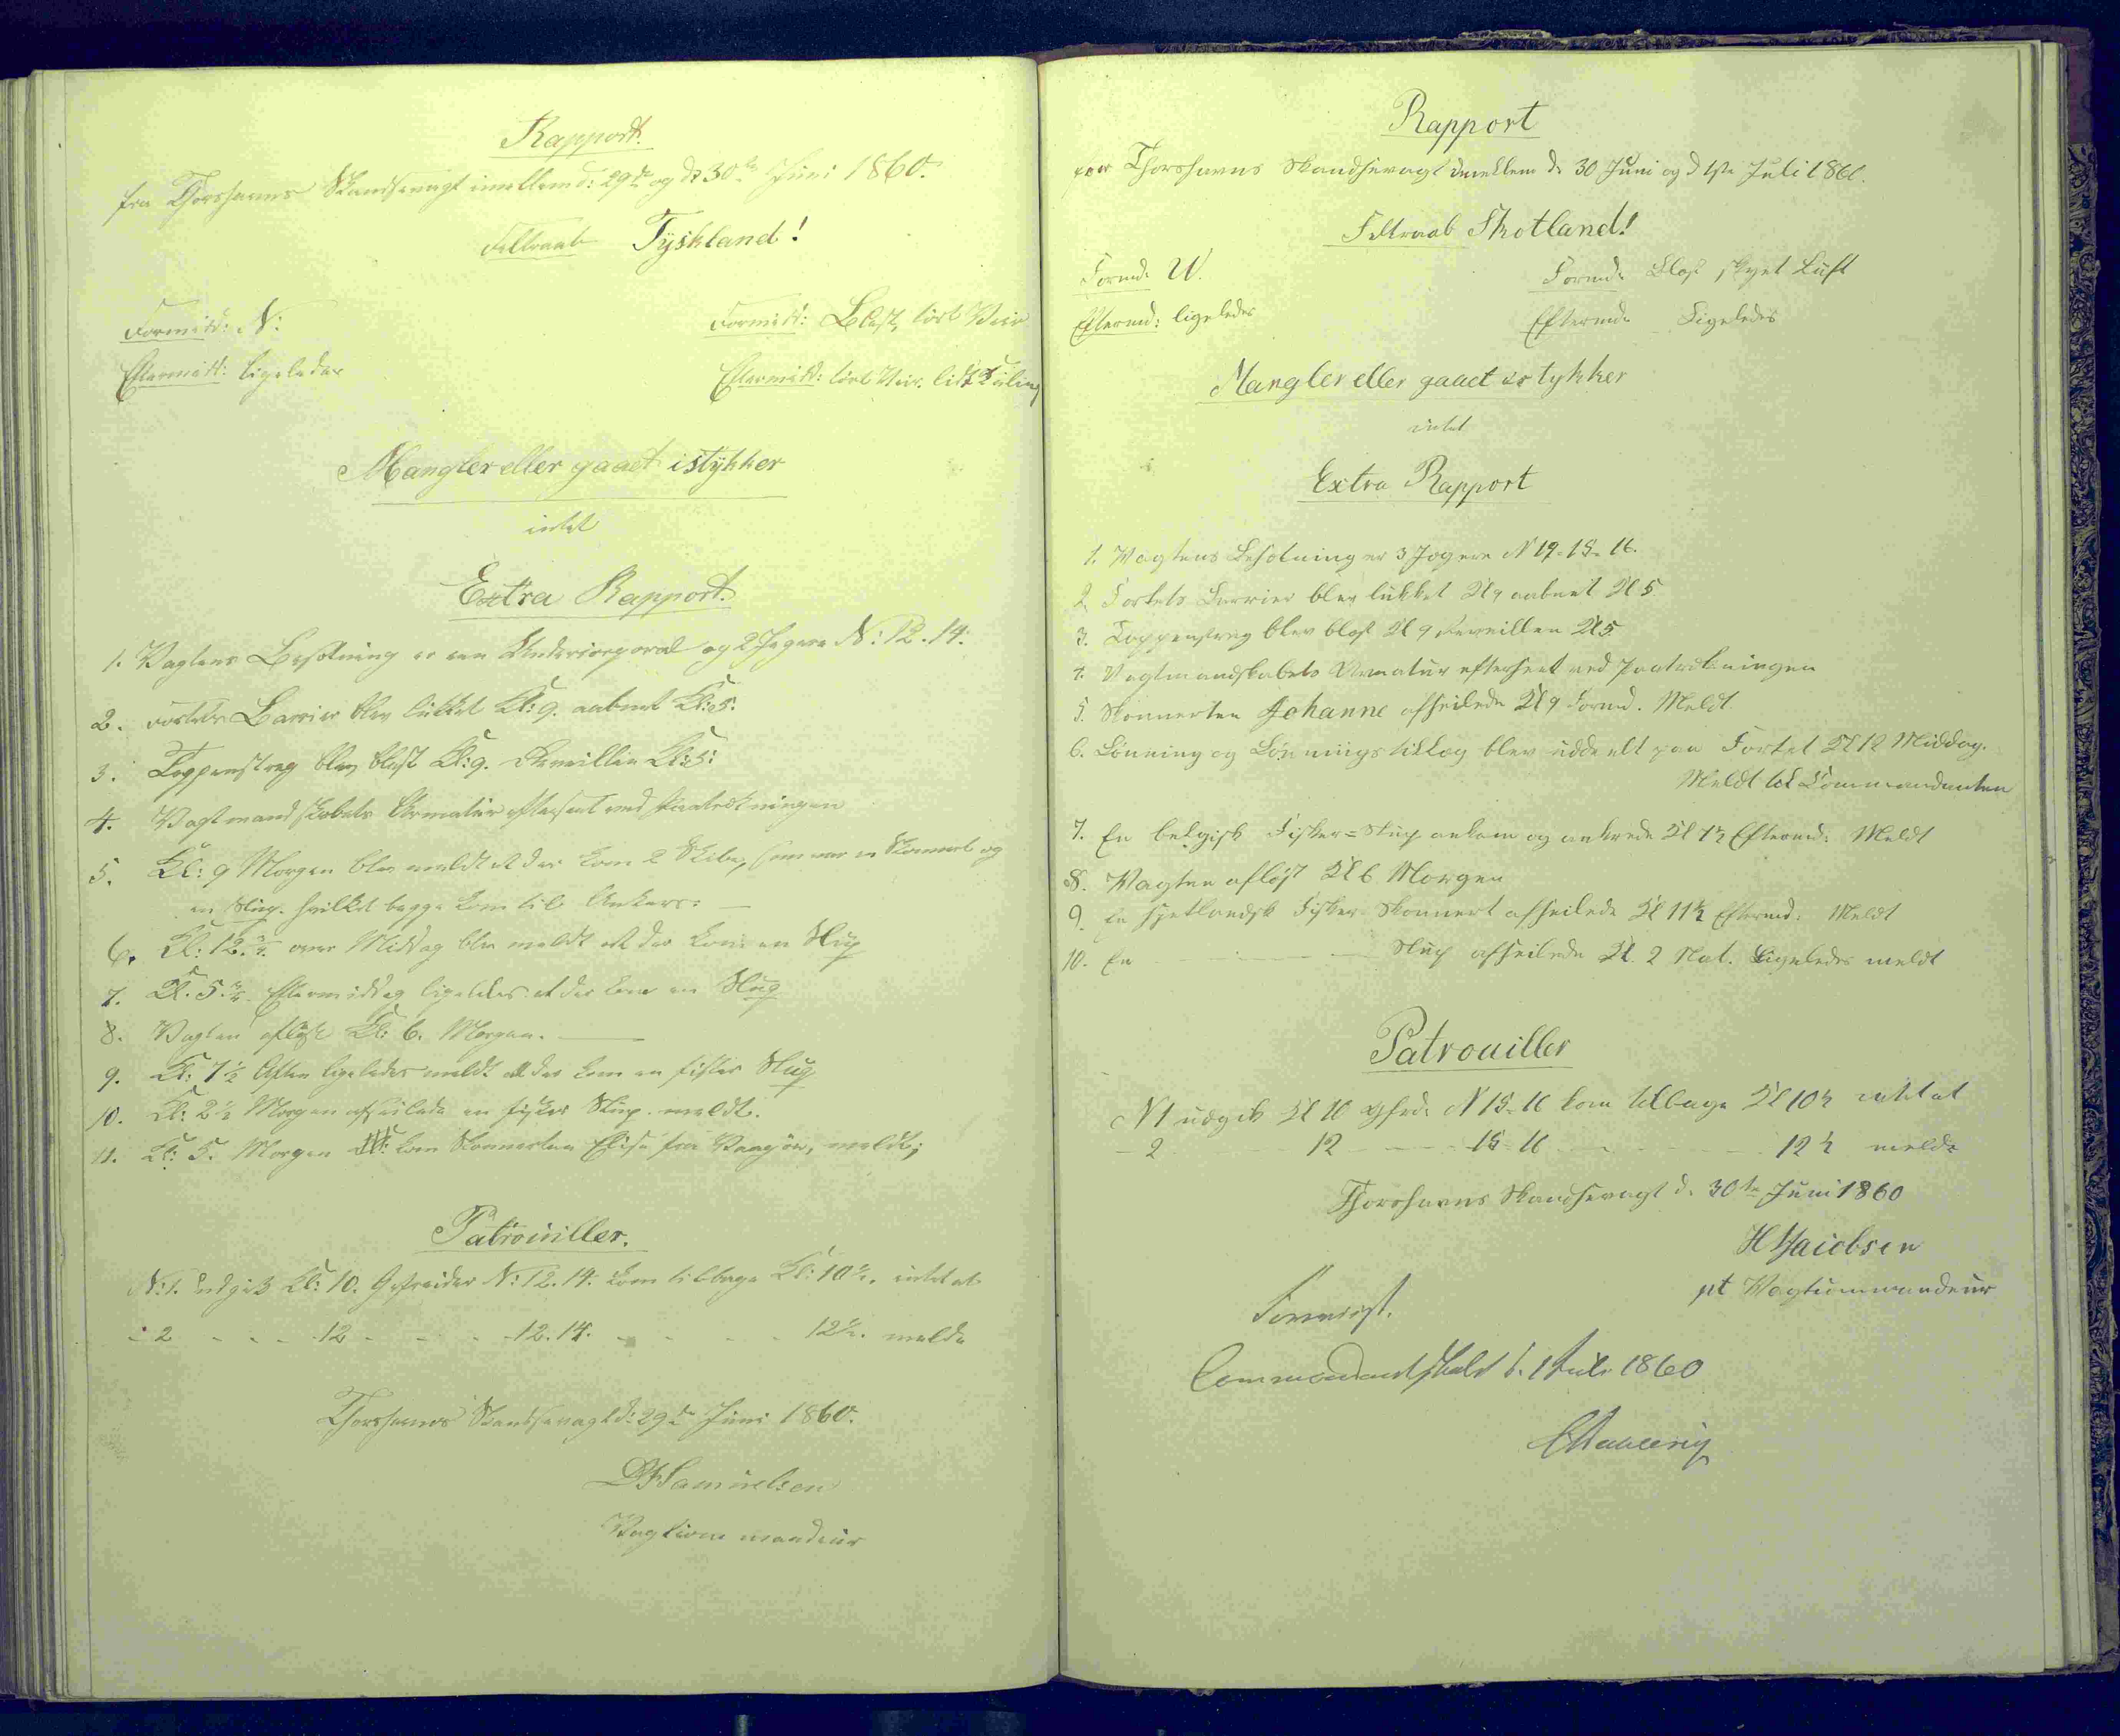 Rapport.
fra Thorshavns Skandsevagt imellem d: 29de og d: 30te Juni 1860.
Feltraab Tÿskland!
Formitt: N: Formitt: Blæst, tørt Veir
Eftermitt: ligeledes Eftermitt: tørt Veir. lidt Kuling
Mangler eller gaaet istÿkker
intet
Extra Rapport.
1. Vagtens Besætning er een Undercorporal og 2 Jægere N: 12. 14.
2. Fortets Barrier blev lukket Kl: 9. aabnet Kl: 5.
3. Tappenstreg blev blæst Kl: 9. Reveillen Kl: 5:
4. Vagtmandskabets Armatur efterseet ved Paatrædningen
5. Kl: 9 Morgen blev meldt at der kom 2 Skibe, som var en Skonnert og
en Slup. hvilket begge kom til Ankers: —
6. Kl: 12. ¾ over Middag blev meldt at der kom en Slup
7. Kl. 5. ¾ Eftermiddag ligeledes at der kom en Slup
8. Vagten afløst Kl: 6. Morgen. —
9. Kl: 7½ Aften ligeledes meldt at der kom en fisker Slup
10. Kl: 2½ Morgen afseilede en fisker Slup. meldt.
11. Kl: 5. Morgen kom Skonnerten Elise fra Vaagøe, meldt;
Patrouiller.
N: 1. Udgik Kl: 10. Gefreider N: 12. 14. kom tilbage Kl: 10½. intet at
- 2 - - - 12 - - - 12. 14. - - - - 12½. melde
Thorshavns Skandsevagt d: 29de Juni 1860.
Samuelsen
Vagtcommandeur
Rapport
paa Thorshavns Skandsevagt imellem d. 30 Juni og d 1ste Juli 1860.
Feltraab Skotland!
Formd. W. Formd. Blæst skyet Luft
Eftermd: ligeledes Eftermd. Ligeledes
Mangler eller gaaet istykker
intet
Extra Rapport
1. Vagtens Besætning er 3 Jægere N 19 - 15 - 16.
2. Fortets Barrier blev lukket Kl 9 aabnet Kl 5
3. Tappenstreg blev blæst Kl 9 Reveillen Kl 5
4. Vagtmandskabets Armatur efterseet ved Paatrædningen
5. Skonnerten Johanne afseilede Kl 9 Formd. Meldt
6. Lønning og Lønningstillæg blev uddeelt paa Fortet Kl 12 Middag.
Meldt til Commandanten
7. En belgisk Fisker = Slup ankom og ankrede Kl 1½ Eftermd: Meldt
8. Vagten afløst Kl 6 Morgen
9. En hjetlandsk Fisker-Skonnert afseilede Kl 11½ Eftermd: Meldt
10. En - - - Slup afseilede Kl. 2 Nat. Ligeledes meldt
Patrouiller
N 1 udgik Kl 10 Gfrd: N 15 - 16 kom tilbage Kl 10½ intet at
- 2 - - - 12 - - - 15 - 16 - - - - 12½ melde
Thorshavns Skandsevagt d. 30te Juni 1860
H Jacobsen
pt Vagtcommandeur
Forevist.
Commandantskabet d. 1 Juli 1860